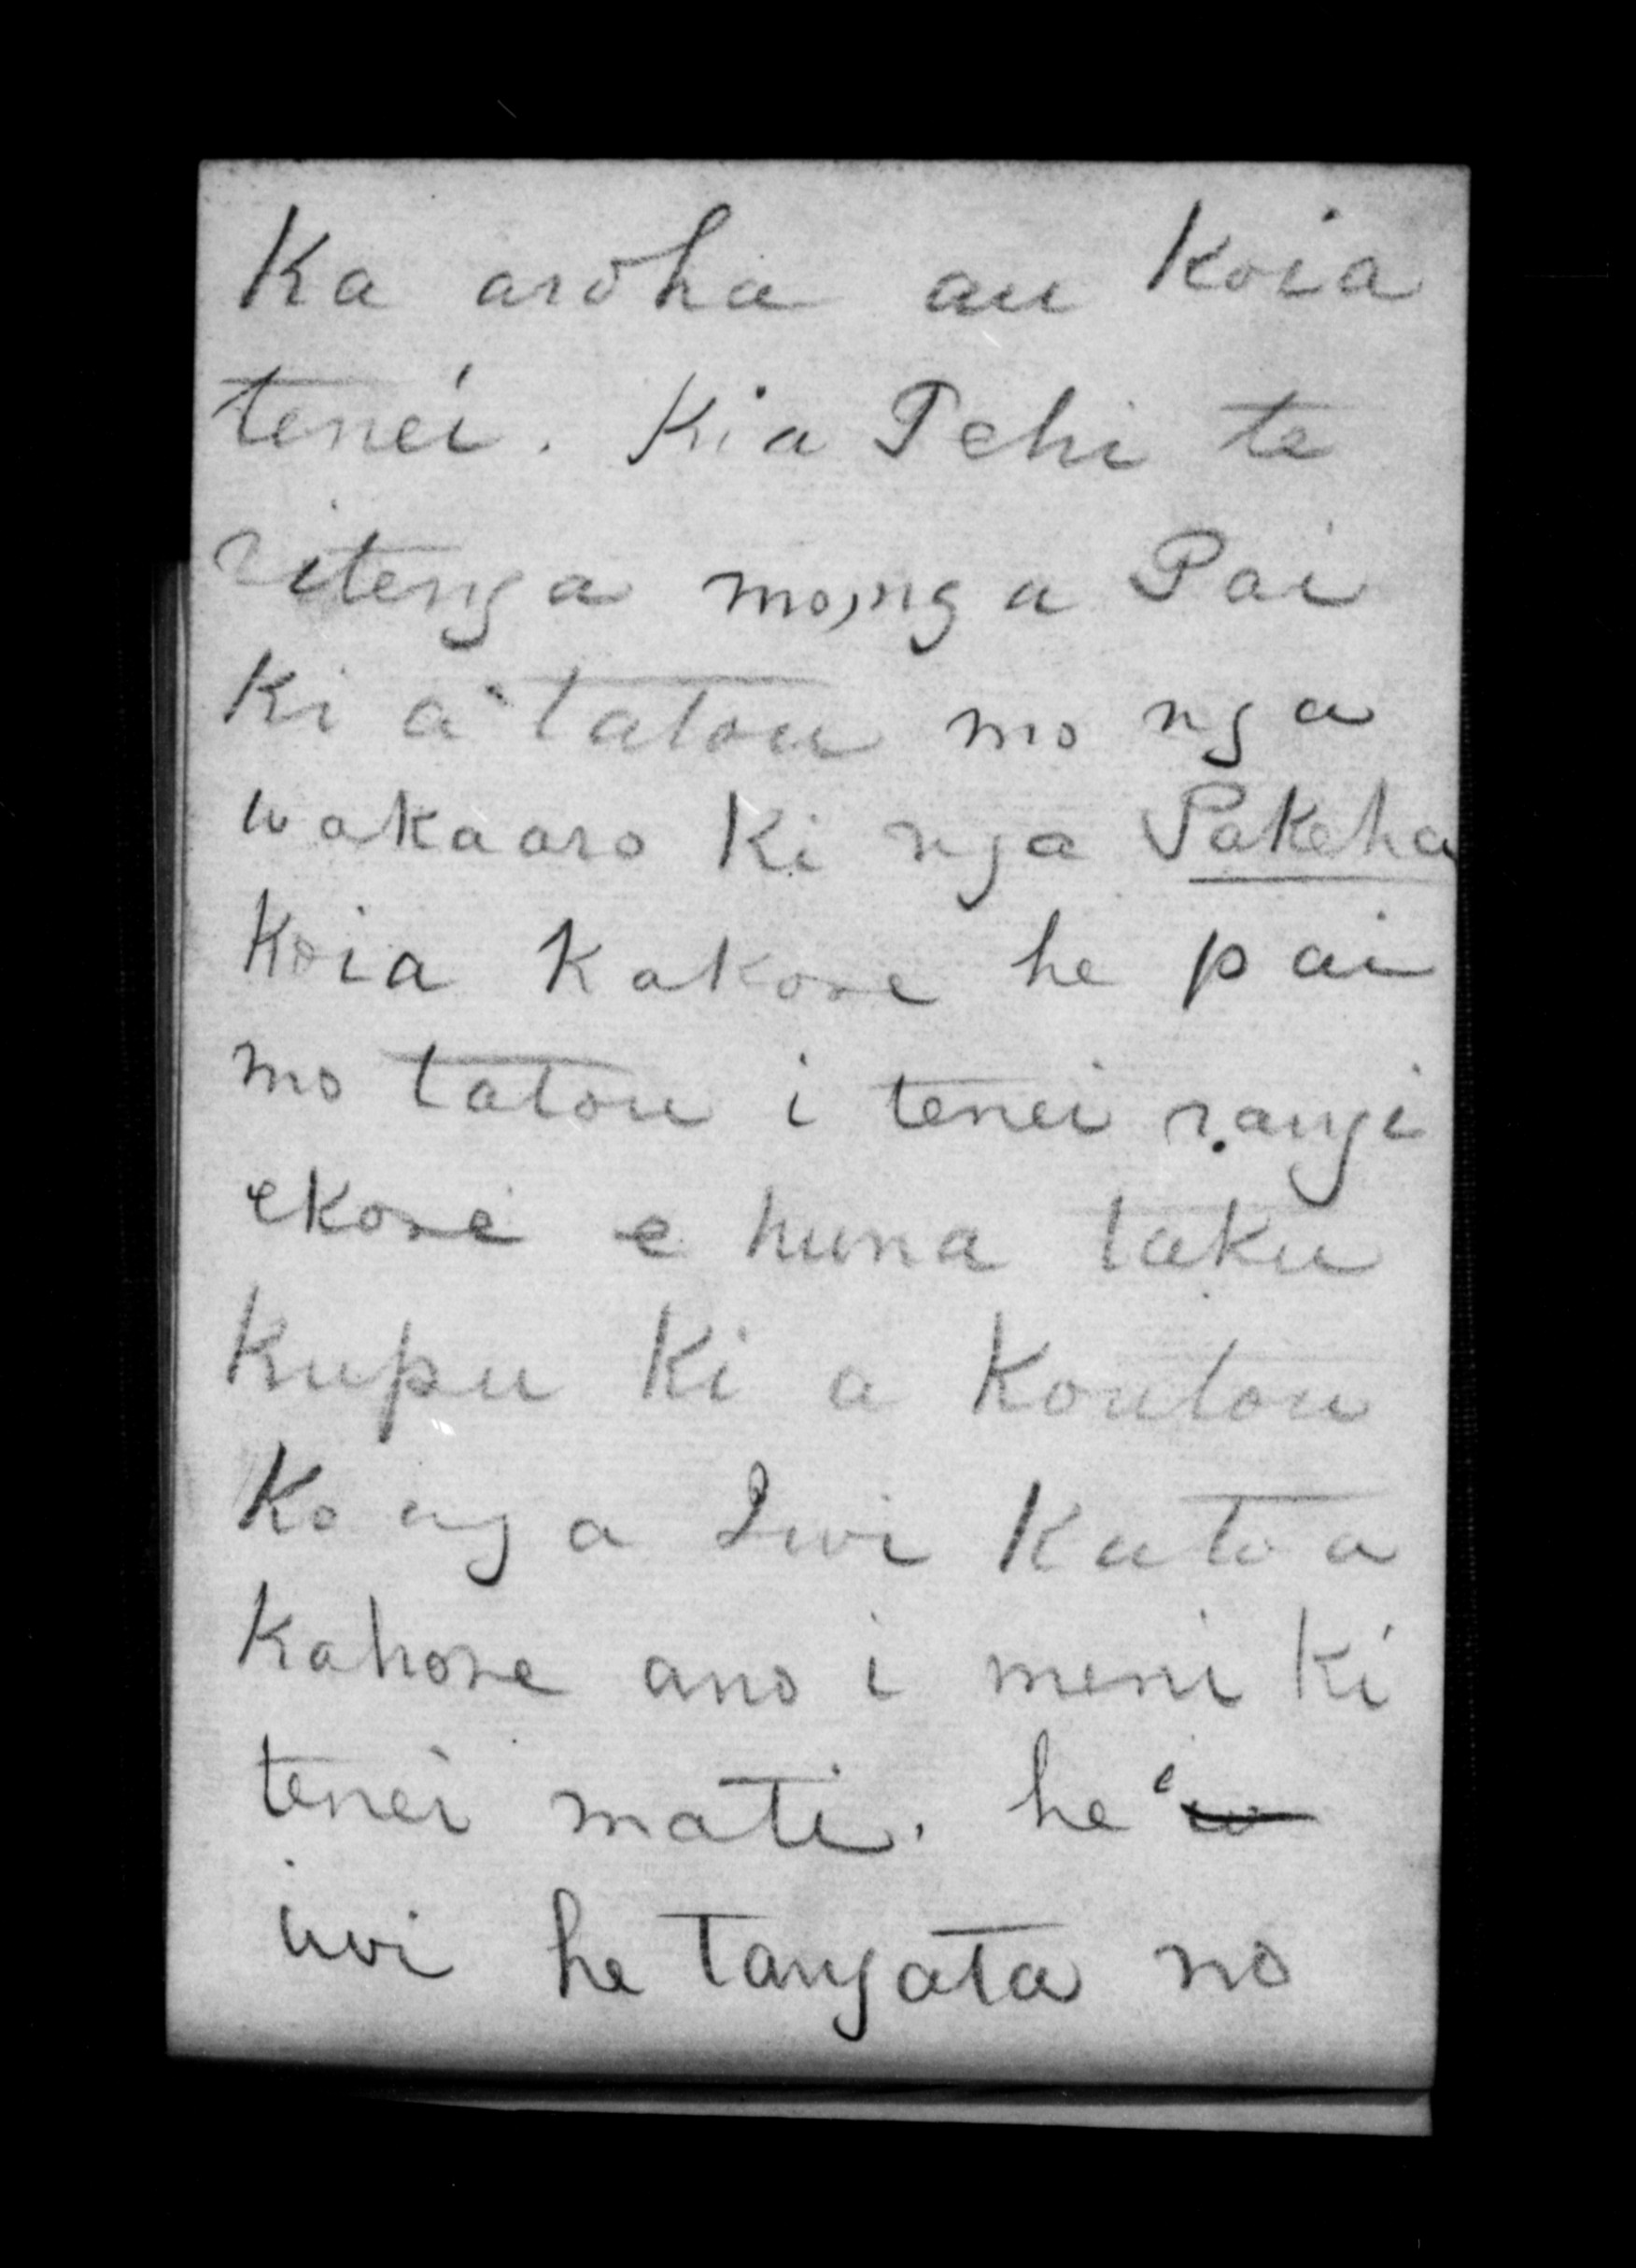 Ka aroha au Koia
tenei. Kia Tehi te
ritenga mo, nga Pai
Ki a tatou mo nga
wakaaro Ki nga Pakeha
Koia Kakore he pai
mo tatou i tenei rangi
ekore e huna taku
Kupu Ki a Koutou
Ko nga Iwi Katoa
Kahore ano i meni Ki
tenei mati. he iw
iwi he tangata no